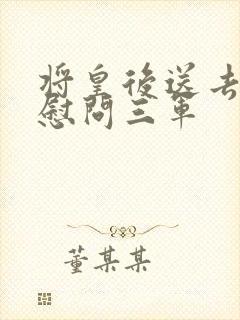 将皇後送去
慰問三軍
董某某